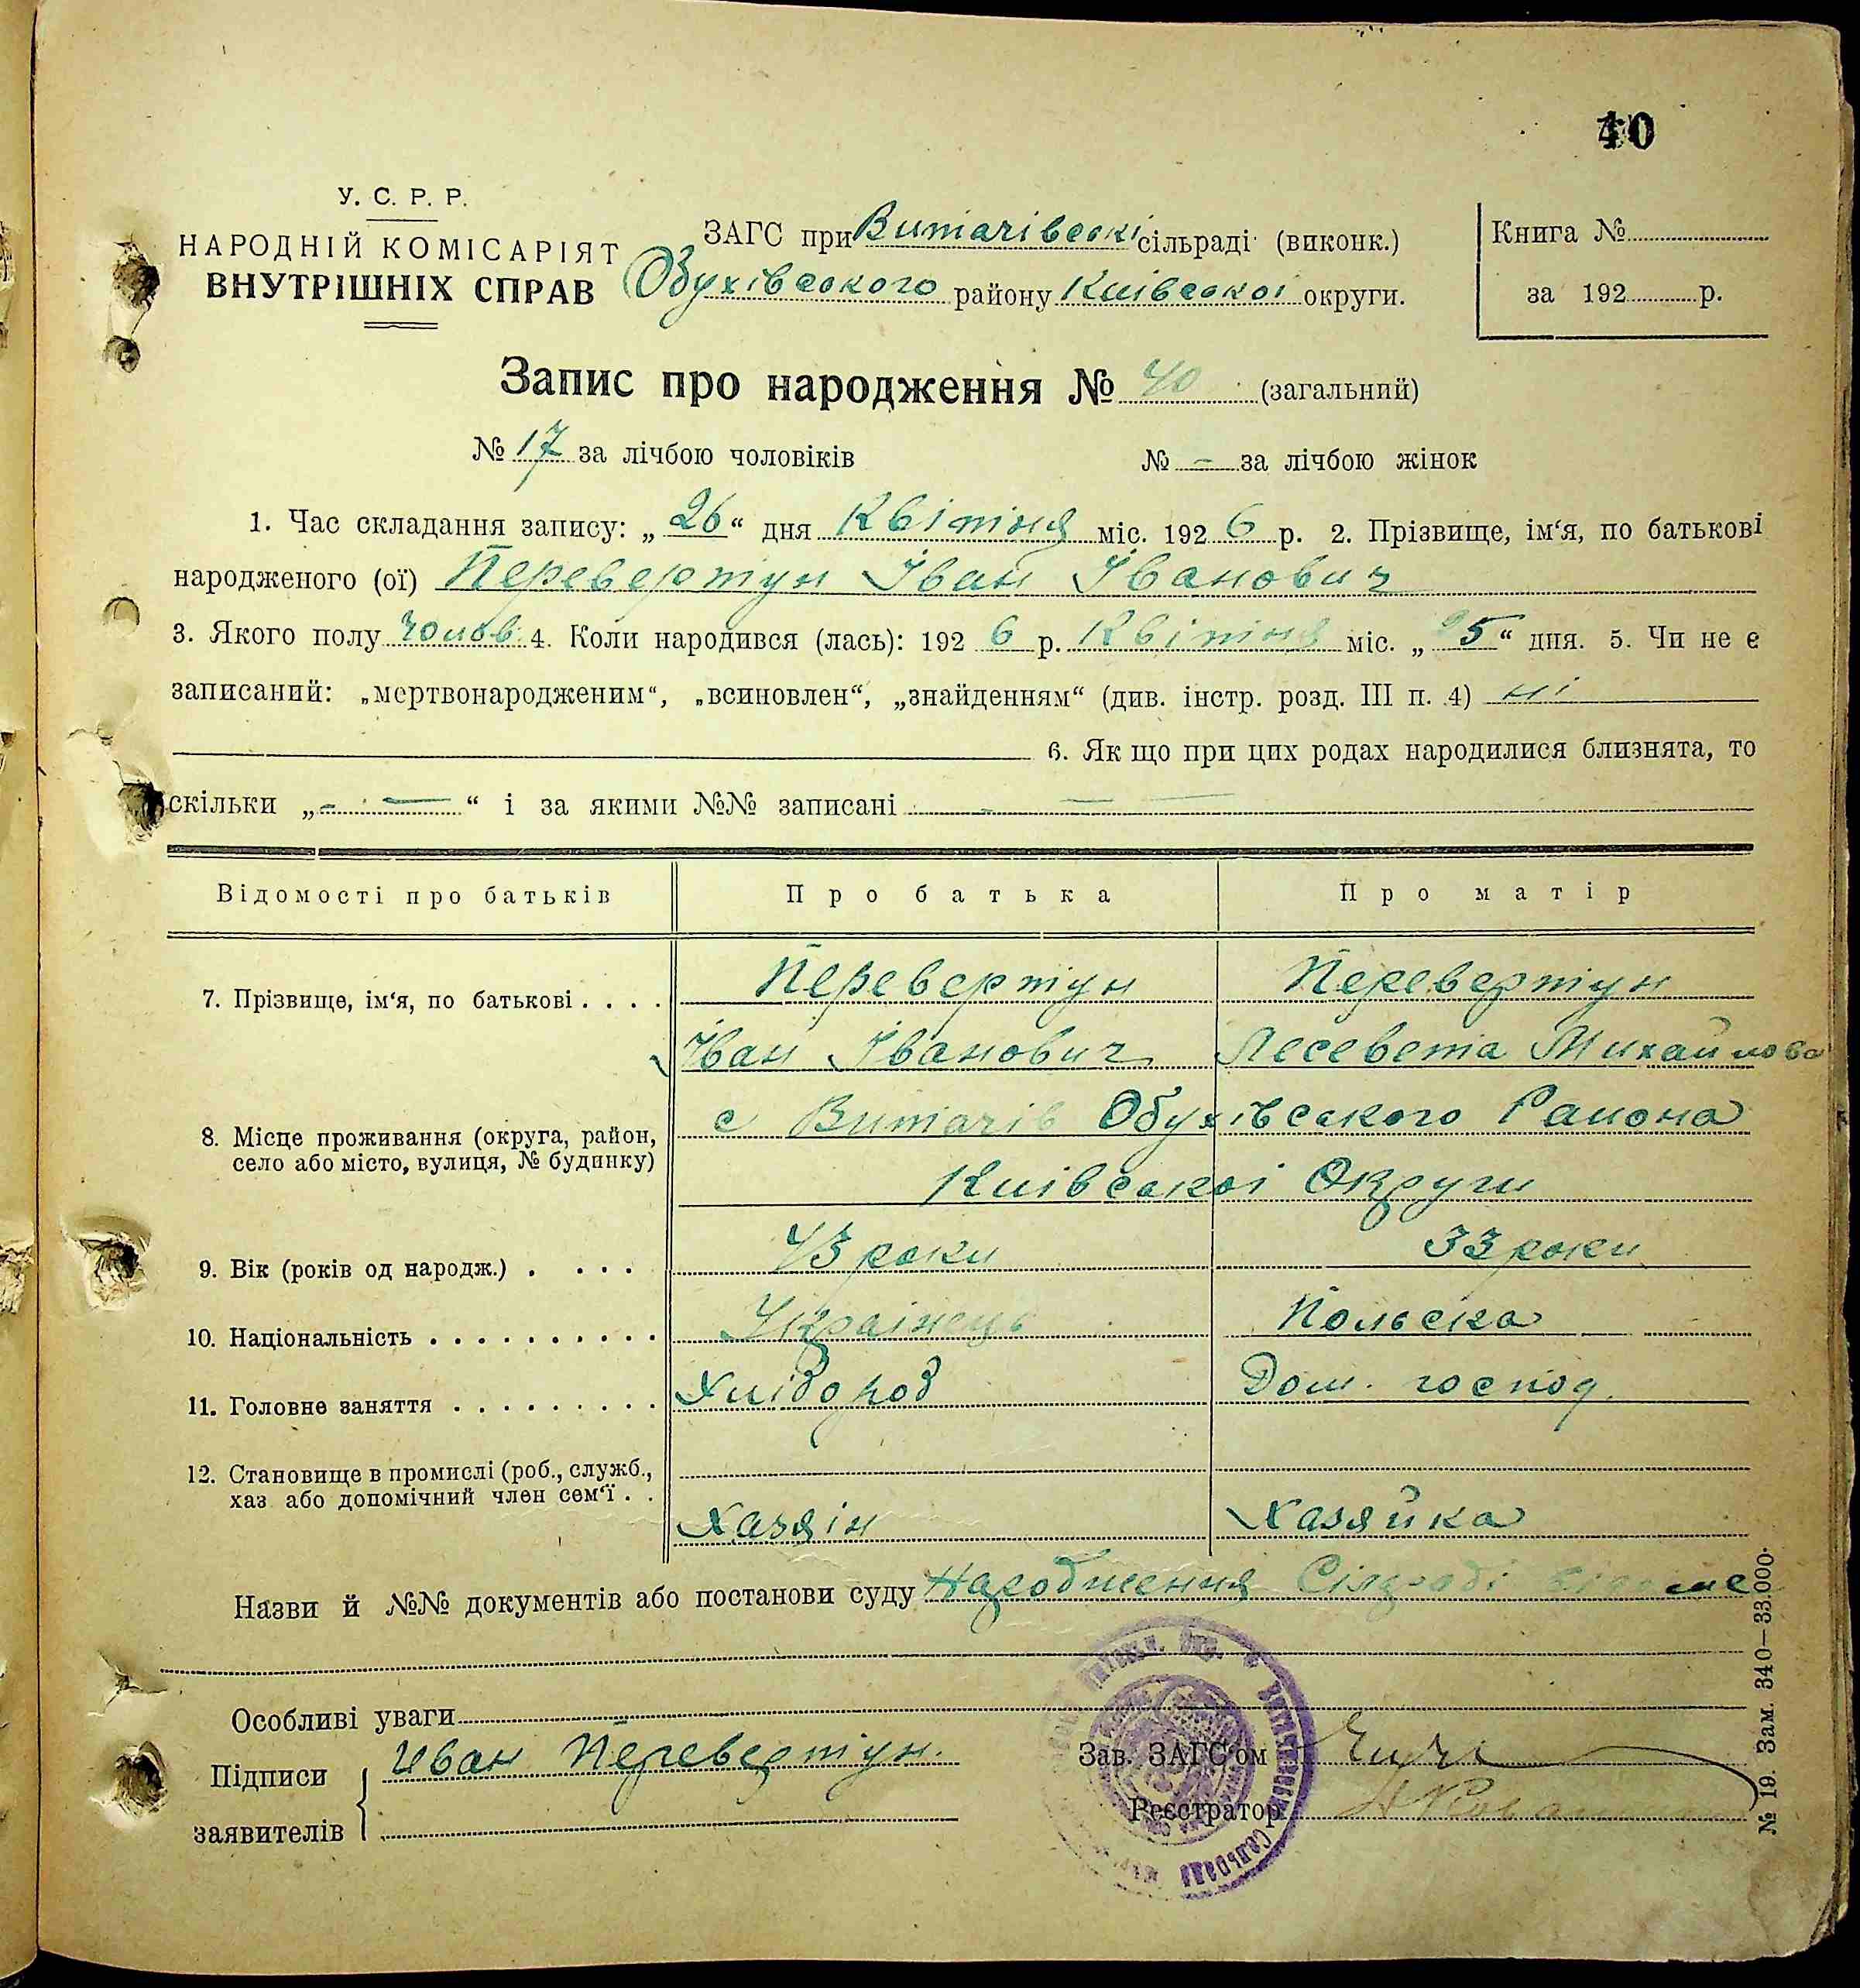 40
У. С. Р. Р.
НАРОДНІЙ КОМІСАРІЯТ
ВНУТРІШНІХ СПРАВ
ЗАГС при Витачівскі сільраді (виконк.)
Обухівського району Київської округи.
Книга №
за 192 р.
Запис про народження № 40 (загальний)
№ 17 за лічбою чоловіків № - за лічбою жінок
1. Час складання запису: „ 26 “ дня Квітня міс. 192 6 р. 2. Прізвище, ім‘я, по батькові
народженого (ої) Перевертун Іван Іванович
3. Якого полу чолов. 4. Коли народився (лась): 192 6 р. Квітня міс. „ 25 “ дня. 5. Чи не є
записаний: „мертвонародженим“, „всиновлен“, „знайденням“ (див. інстр. розд. III п. 4) ні
6. Як що при цих родах народилися близнята, то
скільки „ - — “ і за якими №№ записані - — —
Відомості про батьків Про батька Про матір
7. Прізвище, ім‘я, по батькові . . . . Перевертун Перевертун
Іван Іванович Лесевета Михайлова
8. Місце проживання (округа, район,
село або місто, вулиця, № будинку)
с Витачів Обухівського Раиона
Київськоі Округи
9. Вік (років од народж.) . . . . 43 роки 33 роки
10. Національність . . . . . . . . . . Українець Польска
11. Головне заняття . . . . . . . . . Хлібороб Дом. господ.
12. Становище в промислі (роб., служб.,
хаз або допомічний член сем‘ї . .
Хазяін Хазяйка
Назви й №№ документів або постанови суду Народження Сілраді
Особливі уваги
Підписи
заявителів
Иван Перевертун.
Зав. ЗАГС‘ом
Реєстратор
№ 19. Зам. 340—33.000.